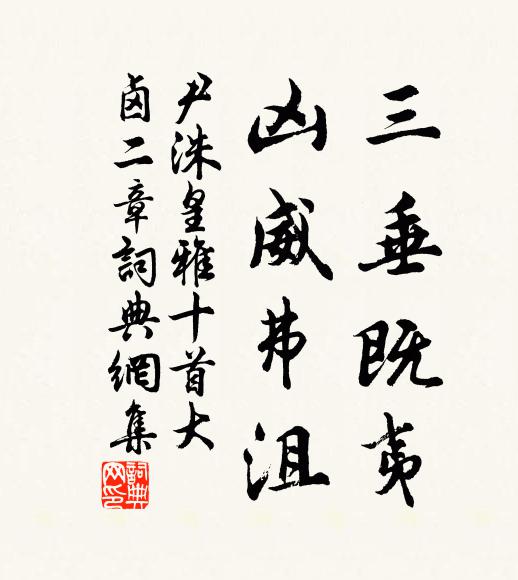 三垂既夷
凶威弗沮
尹洙皇雅十首大
卤二章詞典網集
詞典网印